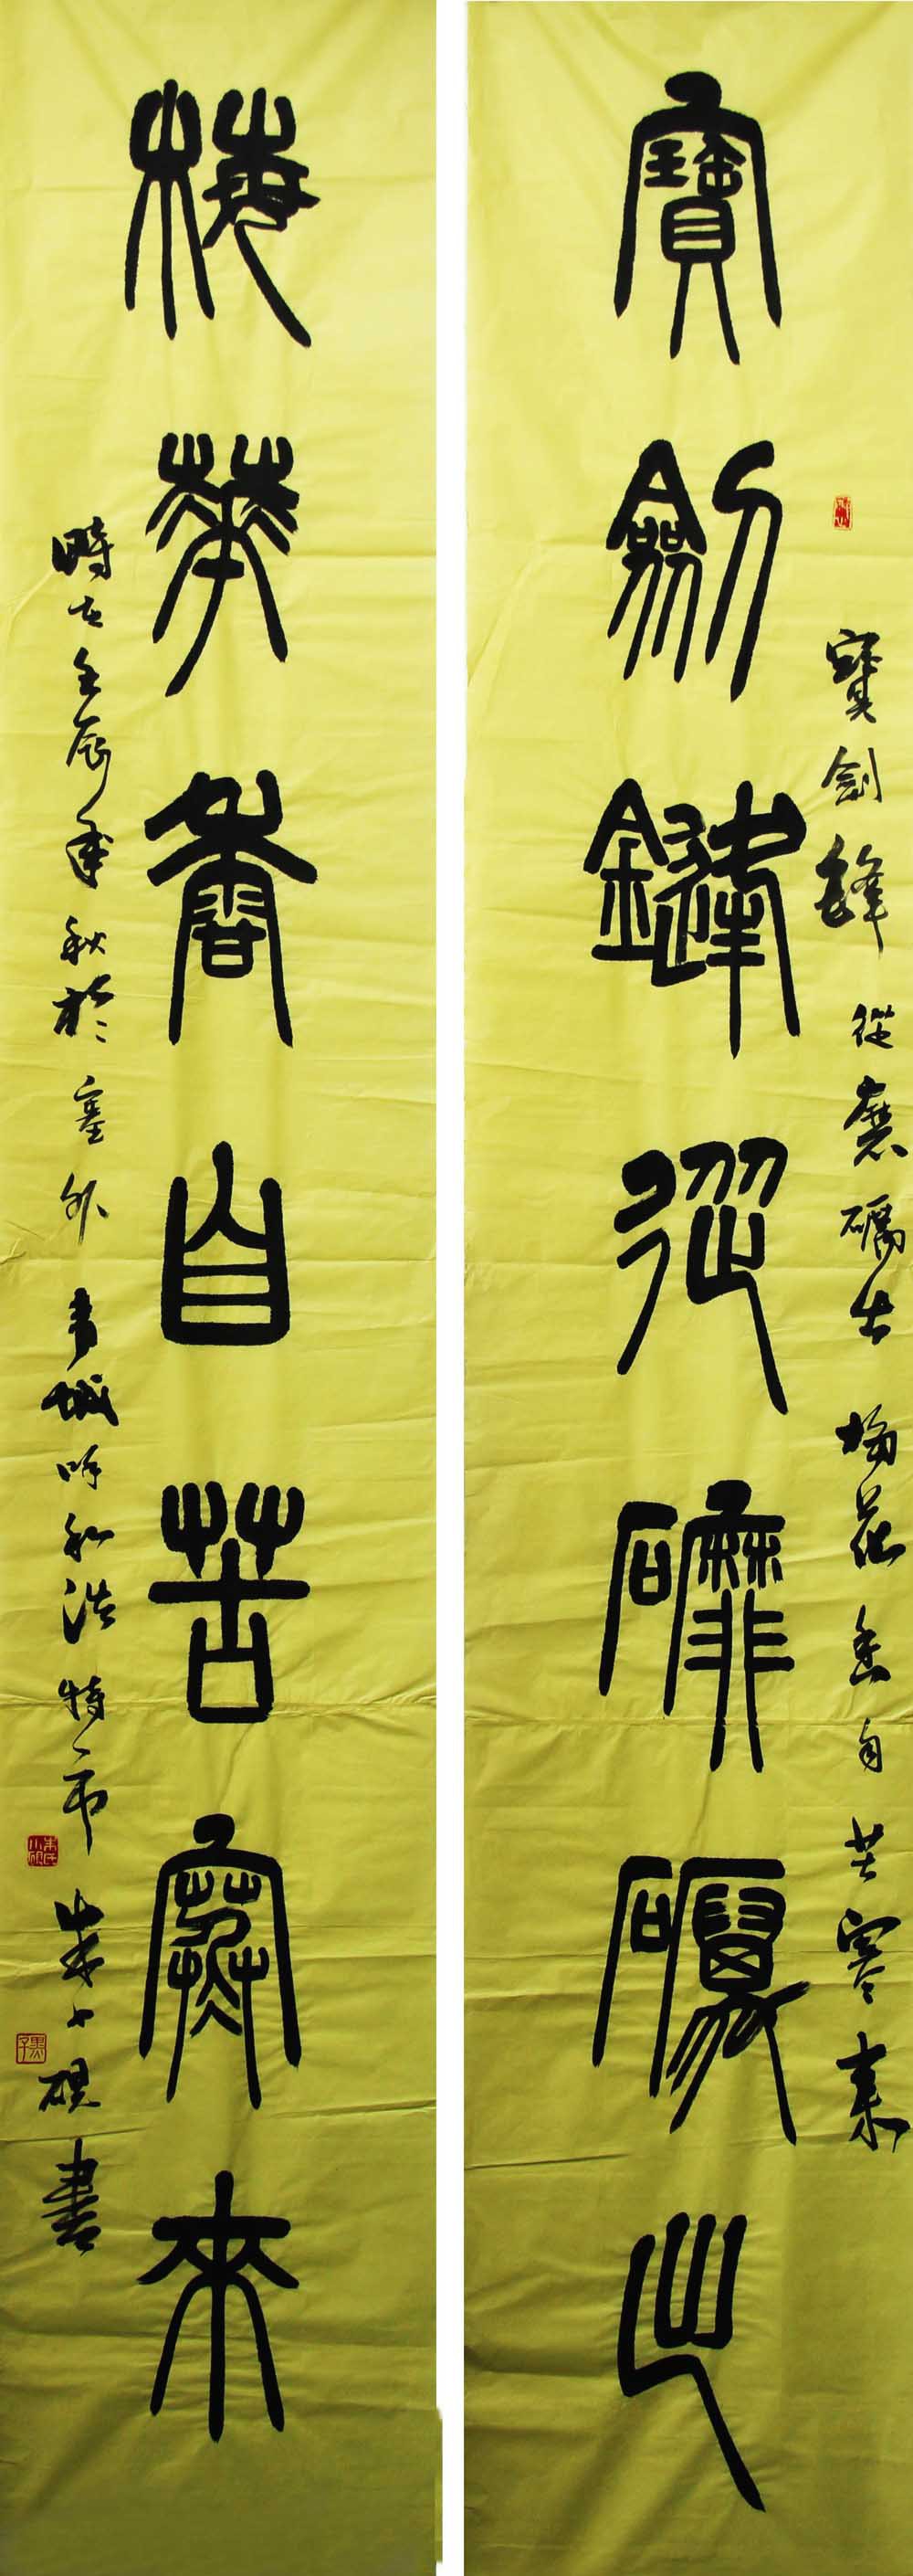 寶劍鋒從磨礪出
寶劍鋒從磨礪出梅花香自苦寒來
梅華香自苦寒來
時在壬辰年秋於塞外青城呼和浩特市朱小硯書